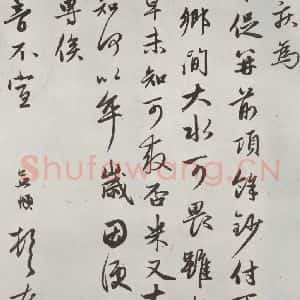 為
促并前項餘鈔付
鄉間大水可畏雖
早未知可救否米又
知何以卒歲因便
專俟
音不宣
頓
Shufawang.CN